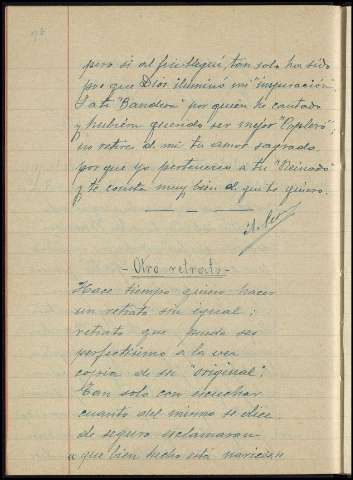 pero si al fin llegué, tan solo ha sido
por que Dios iluminó mi "inspiración".
I a ti "Bandera" por quién he cantado
y hubiera querido ser mejor "Coplero",
no retires de mi tu amor sagrado
por que yo pertenecia a tu "Reinado"
y te consta muy bien el que te quiero.
- Otro retrato -
Hace tiempo quiero hacer
un retrato sin igual;
retrato que pueda ser
perfectisimo a la vez
copia de su "original";
Tan solo con escuchar
cuanto del mismo se dice,
de seguro esclamaran
"que bien hecho está narices"